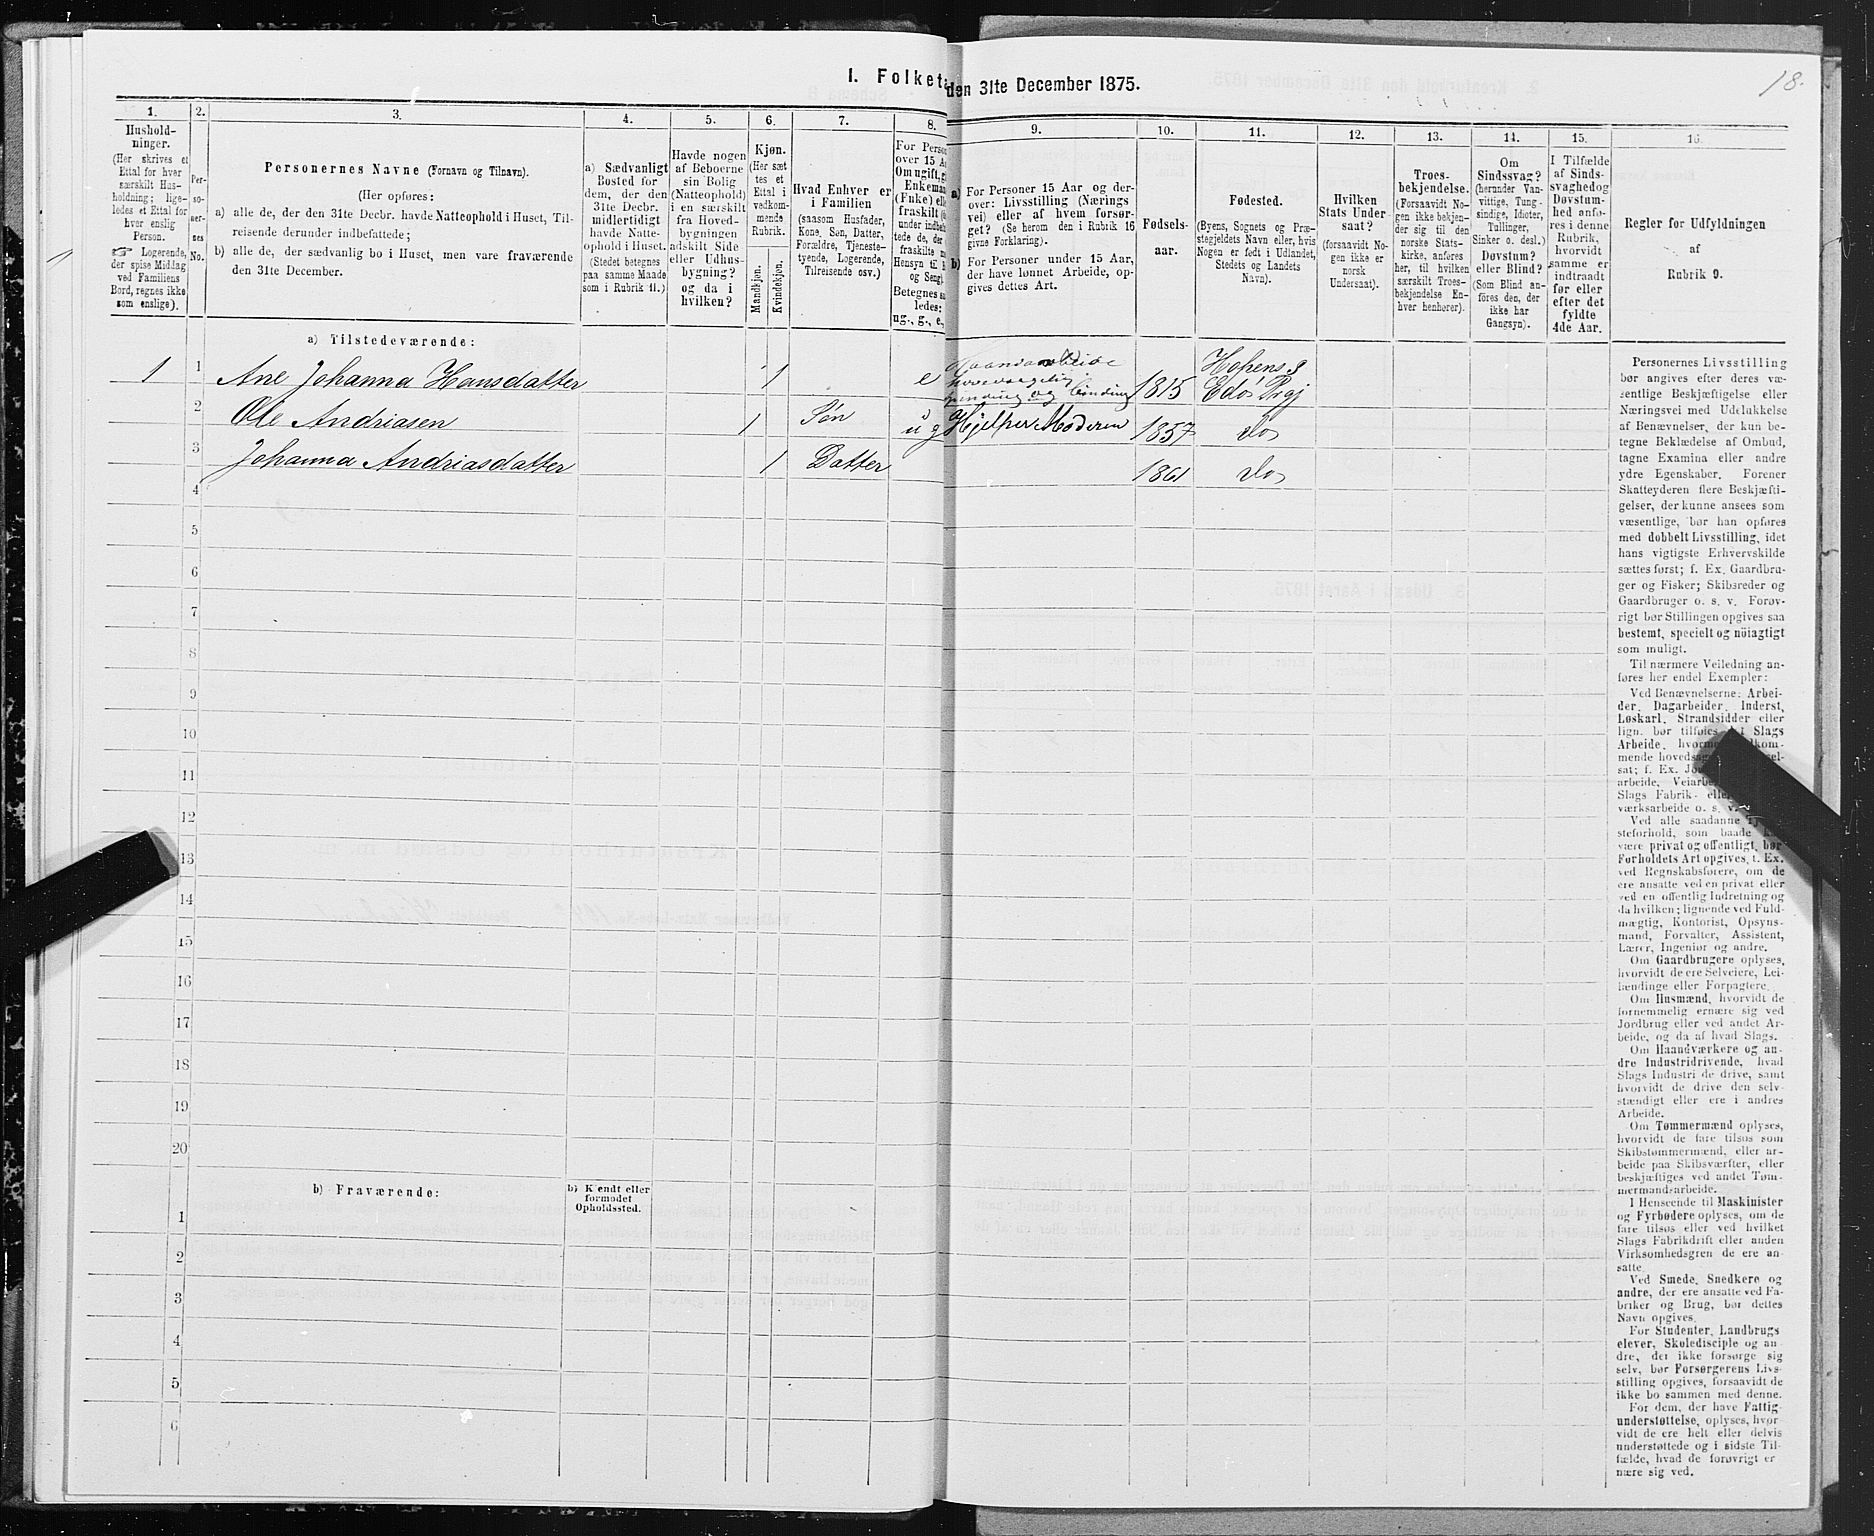 1. Folket
den 31te December 1875.
18.
1.
Hushold-
ninger.
(Her skrives et
Ettal for hver
særskilt Hus-
holdning; lige-
ledes et Ettal for
hver enslig
Person.
Logerende,
der spise Middag
ved Familiens
Bord, regnes ikke
som enslige).
2.
Per-
so-
ner-
nes
No.
3.
Personernes Navne (Fornavn og Tilnavn).
(Her opføres:
a) alle de, der den 31te Decbr. havde Natteophold i Huset, Til-
reisende derunder indbefattede;
b) alle de, der sædvanlig bo i Huset, men vare fraværende
den 31te December.
4.
a) Sædvanligt
Bosted for
dem, der den
31te Decbr.
midlertidigt
havde Natte-
ophold i Huset.
(Stedet betegnes
paa samme Maade
som i Rubrik 11.)
5.
Havde nogen
af Beboerne
sin Bolig
(Natteophold)
i en særskilt
fra Hoved-
bygningen
adskilt Side
eller Udhus-
bygning?
og da i
hvilken?
6.
Kjøn.
(Her sæt
tes et
Ettal i
vedkom-
mende
Rubrik.
Mandkjøn.
Kvindekjøn.
7.
Hvad Enhver er
i Familien
(saasom Husfader,
Kone, Søn, Datter,
Forældre, Tjeneste-
tyende, Logerende,
Tilreisende osv.)
8.
For Perso
over 15 A
Om ugift, g
Enkeman
(Enke) el
fraskilt (
under indbe
tede de, der
fraskilte
Hensyn til
og Seng).
Betegnes s
ledes:
ug., g., e.,
9.
a) For Personer 15 Aar og der-
over: Livsstilling (Nærings
vei) eller af hvem forsør-
get? (Se herom den i Rubrik 16
givne Forklaring).
b) For Personer under 15 Aar,
der have lønnet Arbeide, op-
gives dettes Art.
10.
Fødsels-
aar.
11.
Fødested.
(Byens, Sognets og Præ-
stegjeldets Navn eller, hvis
Nogen er født i Udlandet,
Stedets og Landets
Navn).
12.
Hvilken
Stats Under-
saat?
(forsaavidt No-
gen ikke er
norsk
Undersaat).
13.
Troes-
bekjendelse.
(Forsaavidt No-
gen ikke bekjen-
der sig til den
norske Stats-
kirke, anføres
her, til hvilken
særskilt Troes-
bekjendelse En-
hver henhører).
14.
Om
Sindssvag?
(herunder Van-
vittige, Tung-
sindige, Idioter,
Tullinger,
Sinker o. desl.)
Døvstum?
eller Blind?
(Som Blind an-
føres den, der
ikke har
Gangsyn).
15.
I Tilfælde
af Sinds-
svaghed og
Døvstum-
hed anfø-
res i denne
Rubrik,
hvorvidt
samme er
indtraadt
før eller
efter det
fyldte
4de Aar.
16.
Regler for Udfyldningen
af
Rubrik 9.
a) Tilstedeværende:
1 1 Ane Johanna Hansdatter 1 e Haandarbeide
hovedsagelig
spinding og binding 1815 Hopens S
Edø Prgj
2 Ole Andriasen 1 Søn ug Hjelper Moderen 1857 do
3 Johanna Andriasdatter 1 Datter 1861 do
4
5
6
7
8
9
10
11
12
13
14
15
16
17
18
19
20
b) Fraværende:
b) Kjendt eller
formodet
Opholdssted.
1
2
3
4
5
6
Personernes Livsstilling
bør angives efter deres væ-
sentlige Beskjæftigelse eller
Næringsvei med Udelukkelse
af Benævnelser, der kun be-
tegne Beklædelse af Ombud,
tagne Examina eller andre
ydre Egenskaber. Forener
Skatteyderen flere Beskjæfti-
gelser, der kunne ansees som
væsentlige, bør han opføres
med dobbelt Livsstilling, idet
hans vigtigste Erhvervskilde
sættes først; f. Ex. Gaardbru-
ger og Fisker; Skibsreder og
Gaardbruger o. s. v. Forøv-
rigt bør Stillingen opgives saa
bestemt, specielt og nöiagtigt
som muligt.
Til nærmere Veiledning an-
føres her endel Exempler:
Ved Benævnelserne: Arbei-
der, Dagarbeider, Inderst,
Løskarl, Strandsidder eller
lign. bør tilføies Slags
Arbeide, hvorm dkom-
mende hoveds sel-
sat; f. Ex. Jo
arbeide, Veiarb
Slags Fabrik- elle
værksarbeide o. s. v.
Ved alle saadanne
steforhold, som baade
være privat og offentligt, bør
Forholdets Art opgives, t. Ex.
ved Regnskabsførere, om de
ere ansatte ved en privat eller
ved en offentlig Indretning og
da hvilken; lignende ved Fuld-
mægtig, Kontorist, Opsyns-
mand, Forvalter, Assistent,
Lærer, Ingeniør og andre.
Om Gaardbrugere oplyses,
hvorvidt de ere Selveiere, Lei-
lændinge eller Forpagtere.
Om Husmænd, hvorvidt de
fornemmelig ernære sig ved
Jordbrug eller ved andet Ar-
beide, og da af hvad Slags.
Om Haandværkere og an-
dre Industridrivende, hvad
Slags Industri de drive, samt
hvorvidt de drive den selv-
stændigt eller ere i andres
Arbeide.
Om Tømmermænd oplyses,
hvorvidt de fare tilsøs som
Skibstømmermænd, eller ar-
beide paa Skibsværfter, eller
beskjæftiges ved andet Tøm-
mermandsarbeide.
I Henseende til Maskinister
og Fyrbødere oplyses, om de
fare tilsøs eller ved hvilket
Slags Fabrikdrift eller anden
Virksomhedsgren de ere an-
satte.
Ved Smede, Snedkere og
andre, der ere ansatte ved Fa-
briker og Brug, bør dettes
Navn opgives.
For Studenter, Landbrugs
elever, Skoledisciple og an-
dre, der ikke forsørge sig
selv, bør Forsørgerens Livs-
stilling opgives, forsaavidt de
ikke bo sammen med denne.
For dem, der have Fattig-
understøttelse, oplyses, hvor-
vidt de ere helt eller delvis
understøttede og i sidste Til-
fælde, hvad de forøvrigt er
nære sig ved.